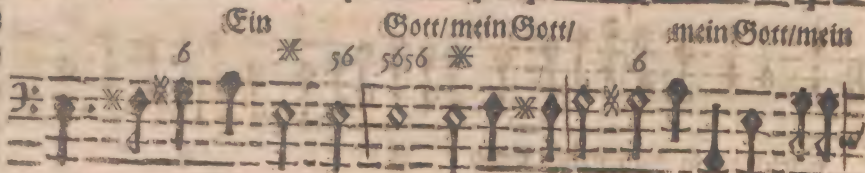 Ein Gott/mein Gott/ mein Gott/mein
6 56 5656 6